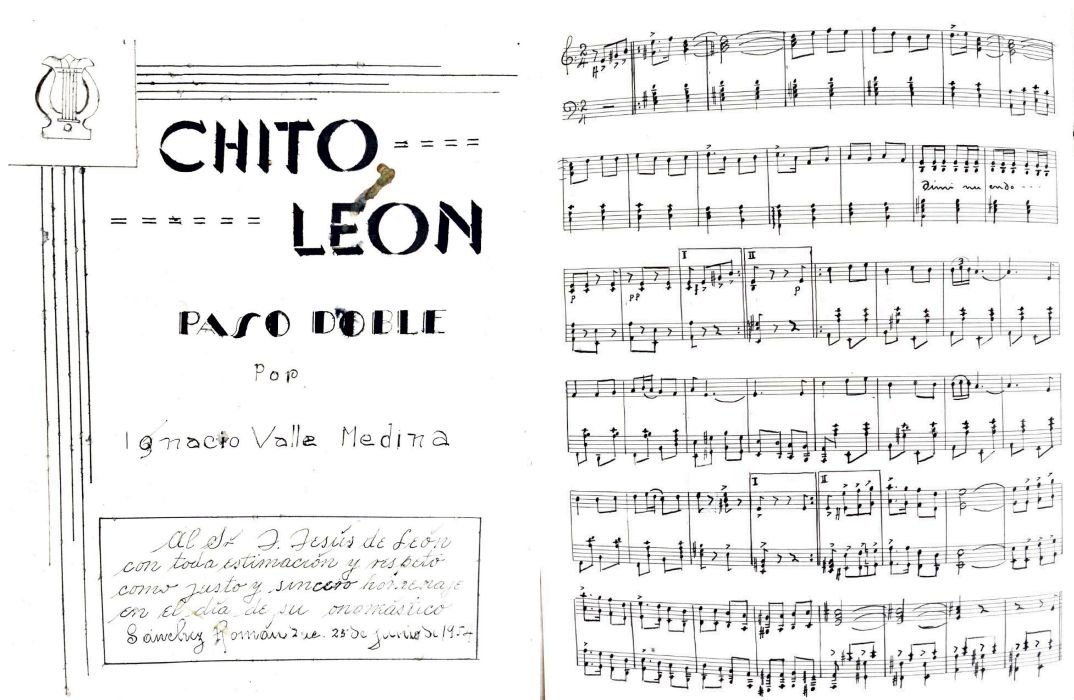 CHITO
LEÓN
PASO DOBLE
Pop
Ignacio Valle Medina
Al Sr. J. Jesús de León
con toda estimación y respeto
como justo y sincero homenaje
en el día de su onomástico
Sánchez Román Zac. 25 de Junio de 1954
2
4
2
4
Diminuendo ---
I
II
p
pp
p
3
3
I
II